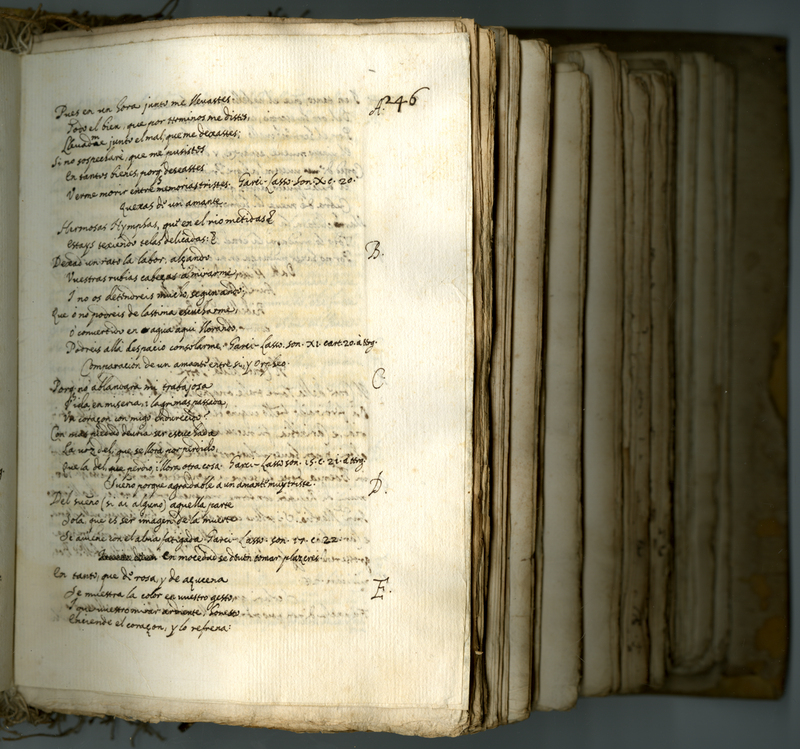 246
Pues en un hora junto me lleuastes
A.
Todo el bien, que por terminos me distis,
Lleuadme junto el mal, que me dexastes;
Si no sospecharé, que me pusistes
En tantos bienes, porq̃ deseastes
Verme morir entre memorias tristes. Garci-Lasso. son. X. c. 20.
Quexas de un amante
Hermosas Nymphas, que en el rio metidas &
Estays texiendo telas delicadas: &
B.
Dexad un rato la labor, alçando
Vuestras rubias cabezas a mirarme,
I no os detendreis mucho, segun ando;
Que ó no podreis de lastima escucharme,
ó conuertido en agua aqui llorando,
Podreis allá despacio consolarme. Garci-Lasso. son. XI. cart. 20. á trg.
Comparacion de un amante entre si, y Orfeo.
C.
Porq̃ no ablandará mi trabajosa
Vida, en miseria, i lagrimas passada,
Un coraçon conmigo endurecido?
Con más piedad deuria ser escuchada
La voz del, que se llora por perdido,
Que la del, que perdio, i llora otra cosa. Garci-Lasso son. 15. c. 21. á trg.
Sueño porque agradable á un amante muy triste.
D.
Del sueño (si ai alguno) aquella parte
Sola, que es ser imagen de la muerte
Se auiene con el alma fatigada Garci-Lasso. son. 17. c. 22.
En mocedad se deuen tomar plazeres
En tanto, que de rosa, y de açucena
E.
Se muestra la color en vuestro gesto,
I que vuestro mirar ardiente, honesto
Enciende el coraçon, y lo refrena: